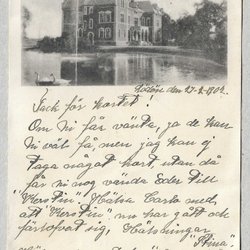 den 27-2-1902.
Tack för kortet!
Om Ni får vänta, ja de kan
Ni väl få, men jag kan ej
taga något kort, utan då
får Ni nog vända Eder till
"Kerstin" Hälsa Carla med,
att "Kerstin" nu har gått och
förlofvat sig. Helsningar
"Stina"